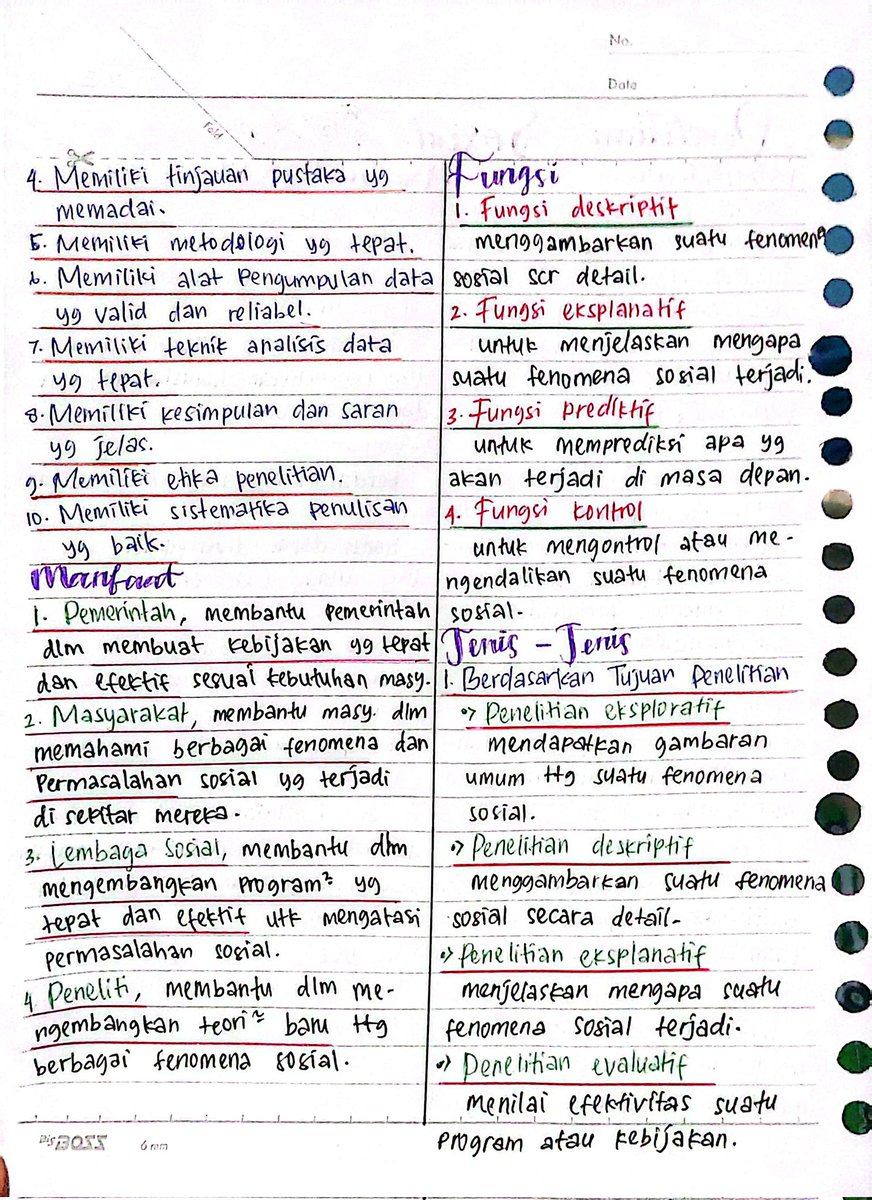 No.
Date
Fold
4. Memiliki tinjauan pustaka yg
memadai.
5. Memiliki metodologi yg tepat.
6. Memiliki alat Pengumpulan data
yg valid dan reliabel.
7. Memiliki teknik analisis data
yg tepat.
8. Memiliki kesimpulan dan saran
yg jelas.
9. Memiliki etika penelitian.
10. Memiliki sistematika penulisan
yg baik.
Manfaat
1. Pemerintah, membantu pemerintah
dlm membuat kebijakan yg tepat
dan efektif sesuai kebutuhan masy.
2. Masyarakat, membantu masy. dlm
memahami berbagai fenomena dan
Permasalahan sosial yg terjadi
di sekitar mereka.
3. Lembaga Sosial, membantu dlm
mengembangkan program² yg
tepat dan efektif utk mengatasi
permasalahan sosial.
4. Peneliti, membantu dlm me-
ngembangkan teori² baru ttg
berbagai fenomena sosial.
Fungsi
1. Fungsi deskriptif
menggambarkan suatu fenomena
sosial scr detail.
2. Fungsi eksplanatif
untuk menjelaskan mengapa
suatu fenomena sosial terjadi.
3. Fungsi prediktif
untuk memprediksi apa yg
akan terjadi di masa depan.
4. Fungsi kontrol
untuk mengontrol atau me-
ngendalikan suatu fenomena
sosial.
Jenis - Jenis
1. Berdasarkan Tujuan Penelitian
•> Penelitian eksploratif
mendapatkan gambaran
umum ttg suatu fenomena
sosial.
•> Penelitian deskriptif
menggambarkan suatu fenomena
sosial secara detail.
•> Penelitian eksplanatif
menjelaskan mengapa suatu
fenomena sosial terjadi.
•> Penelitian evaluatif
menilai efektivitas suatu
program atau kebijakan.
Big BOSS 6 mm